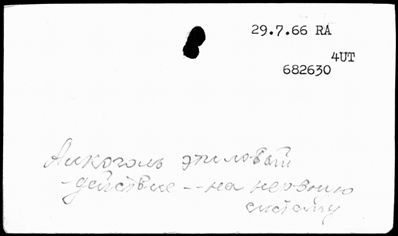 29.7.66 RA
4UT
682630
Алкоголь этиловый
-действие -- на нервную
систему